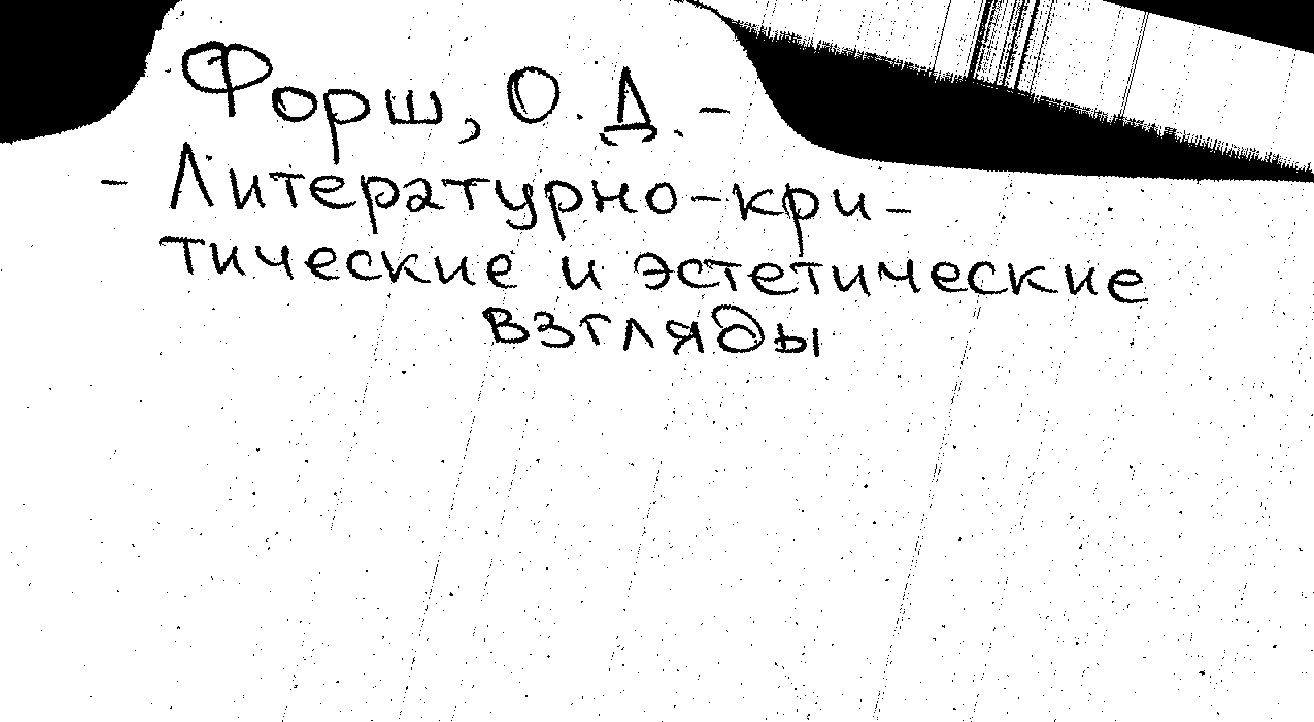 Форш, О. Д. -
- Литературно-кри-
тические и эстетические
взгляды